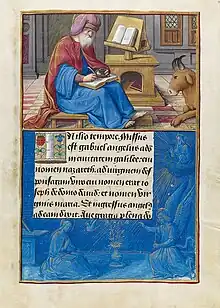 In illo tempore. Missus
est gabriel angelus a d
in civitatem galilee cui
nomen nazareth. ad virginem d
sponsatam viro cui nomen erat io
seph de domo david: et nomen vir
ginis maria. Et ingressus angel
ad eam dixit. Ave gratia plena d